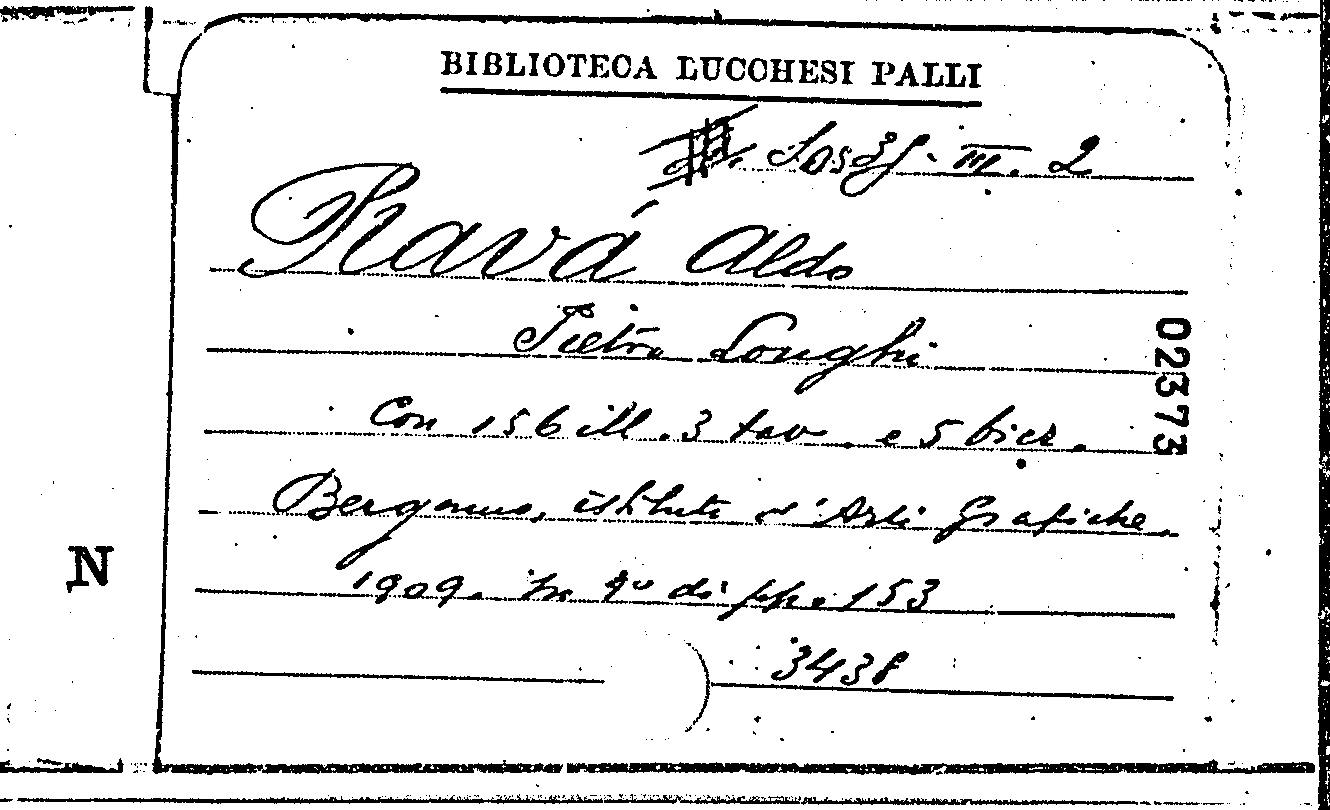 BIBLIOTECA LUCCHESI PALLI
III. 2
Ravá Aldo
Pietro Longhi
Con 156 ill. 3 tav. e 5 tricr.
Bergamo, istituto d'Arti Grafiche.
1909. In 4º di pp. 153
3438
02373
N